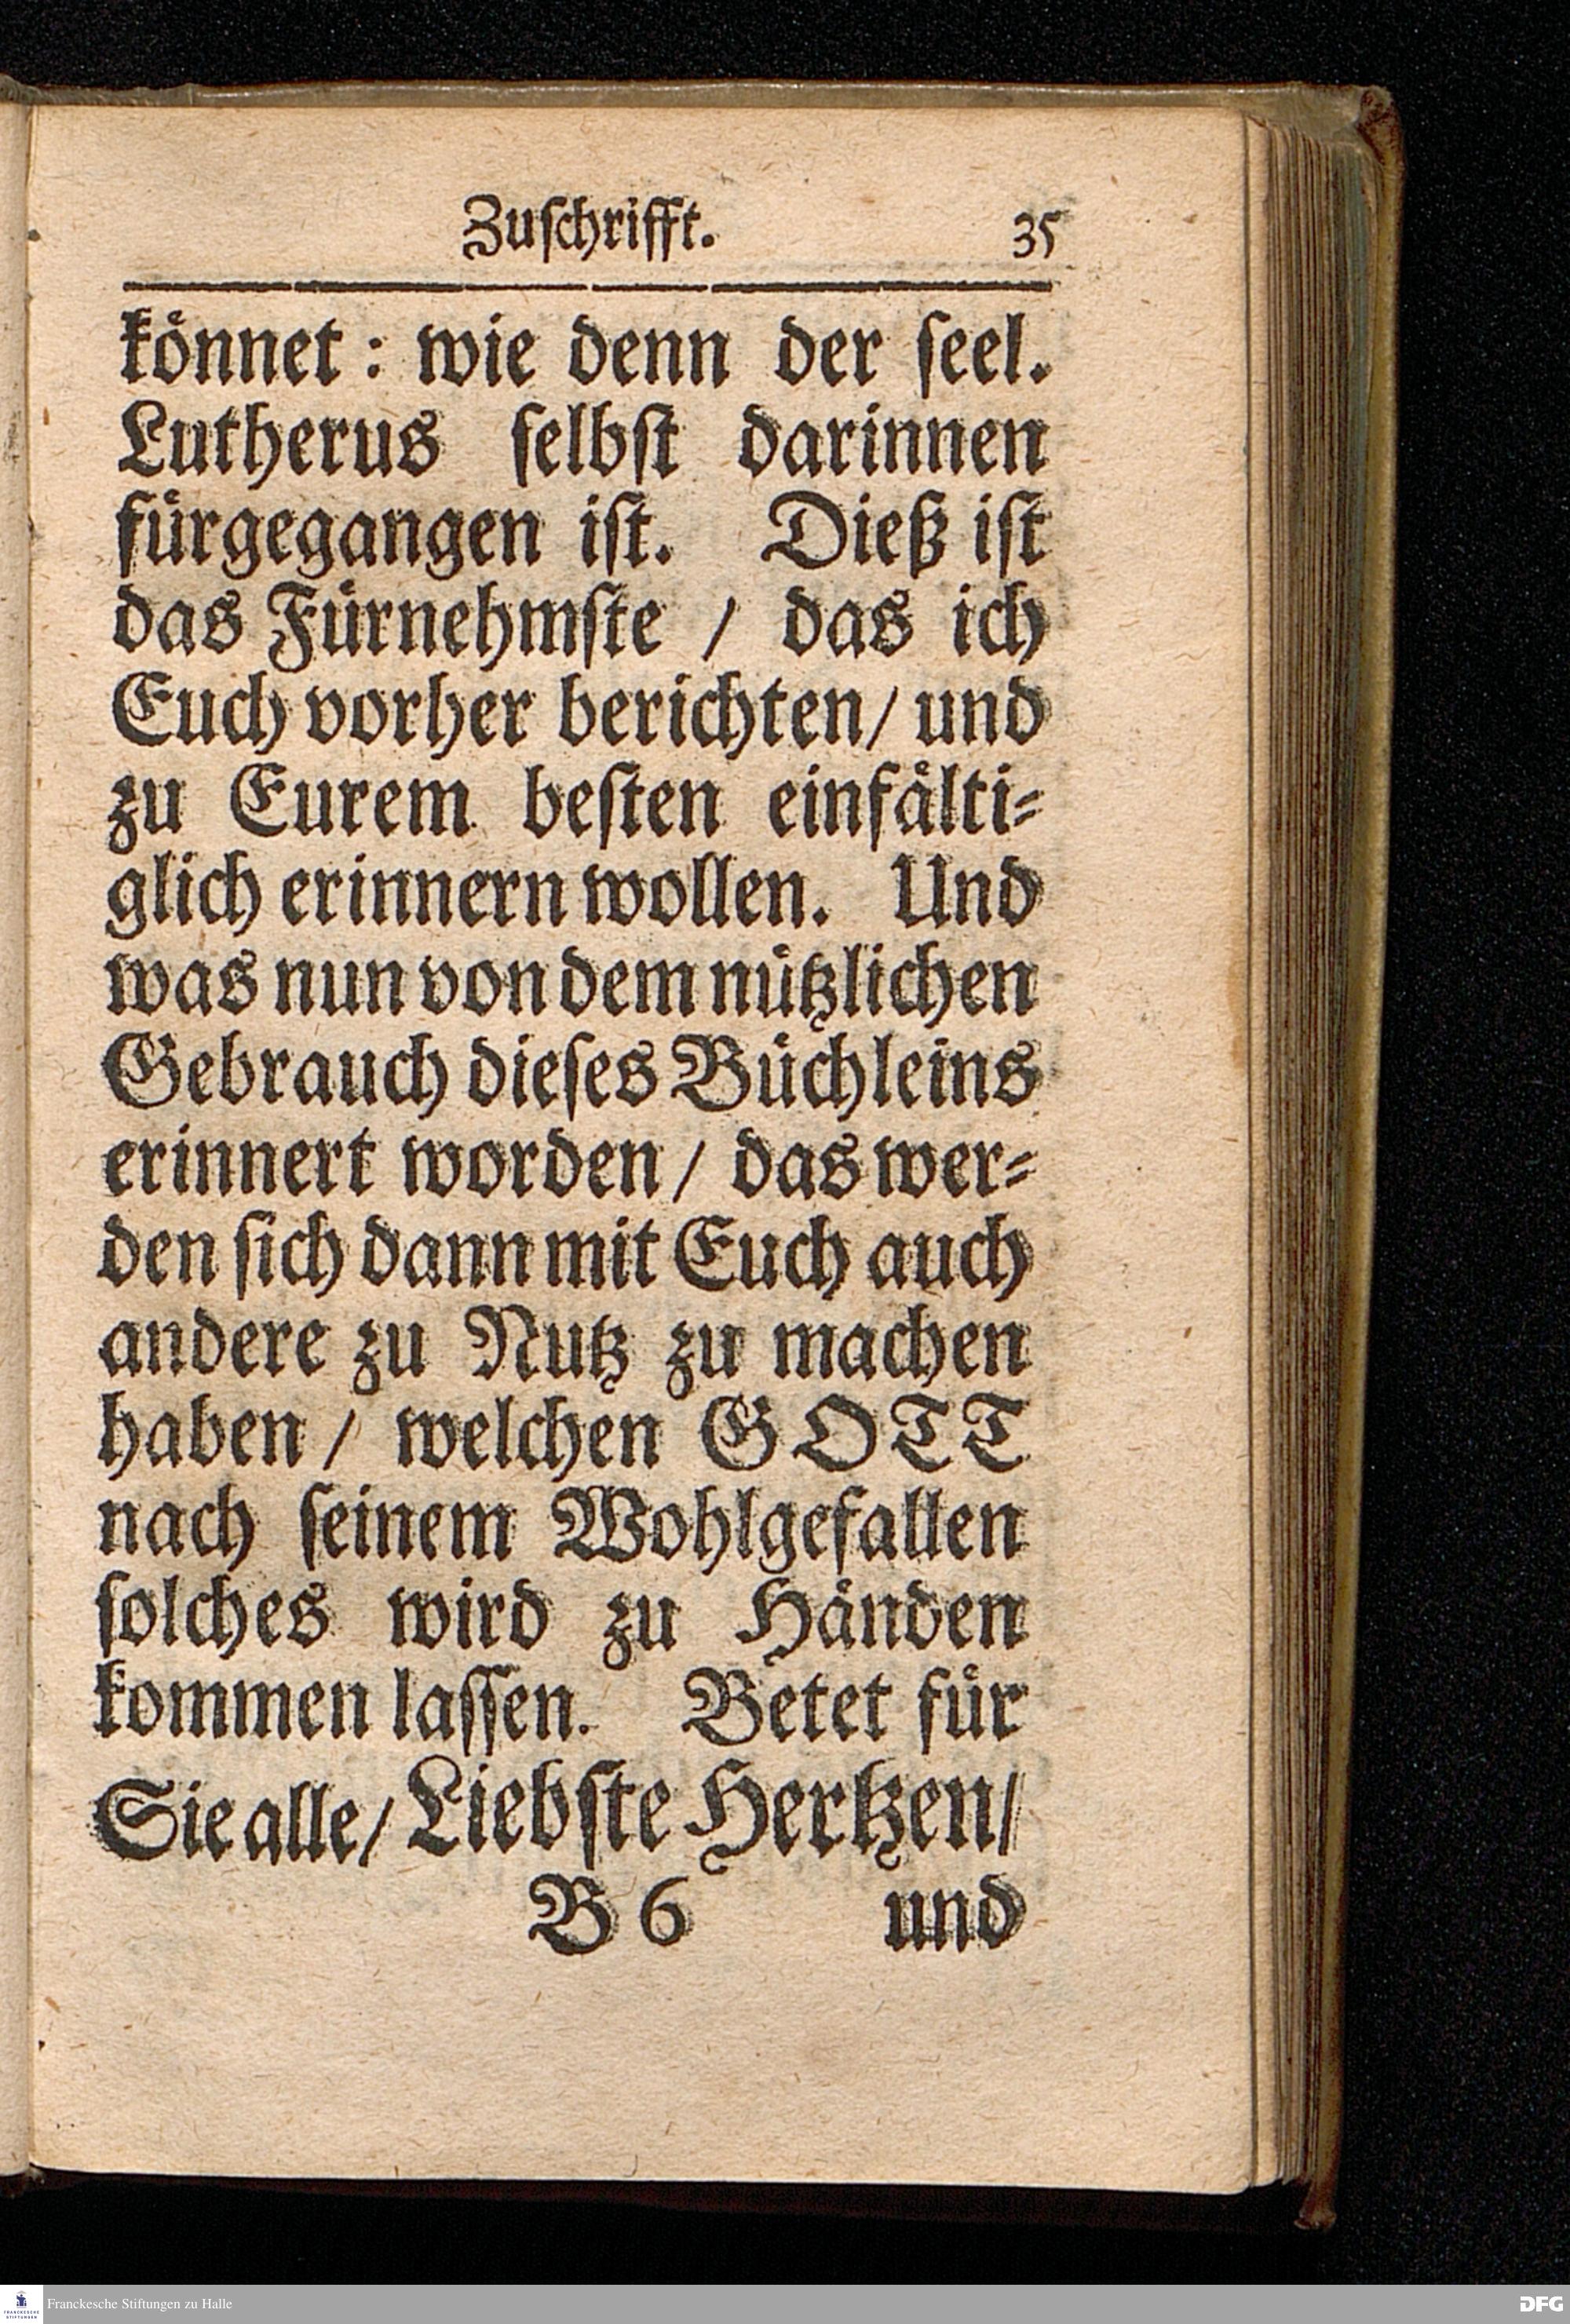 Zuſchrifft. 35
koͤnnet: wie denn der ſeel.
Lutherus ſelbſt darinnen
fuͤrgegangen iſt. Dieß iſt
das Fuͤrnehmſte / das ich
Euch vorher berichten / und
zu Eurem beſten einfaͤlti⸗
glich erinnern wollen. Und
was nun von dem nuͤtzlichen
Gebrauch dieſes Buͤchleins
erinnert worden / das wer⸗
den ſich dann mit Euch auch
andere zu Nutz zu machen
haben / welchen GOTT
nach ſeinem Wohlgefallen
ſolches wird zu Haͤnden
kommen laſſen. Betet fuͤr
Sie alle / Liebſte Hertzen /
B 6 und
FRANCKESCHE STIFTUNGEN
Franckesche Stiftungen zu Halle
DFG